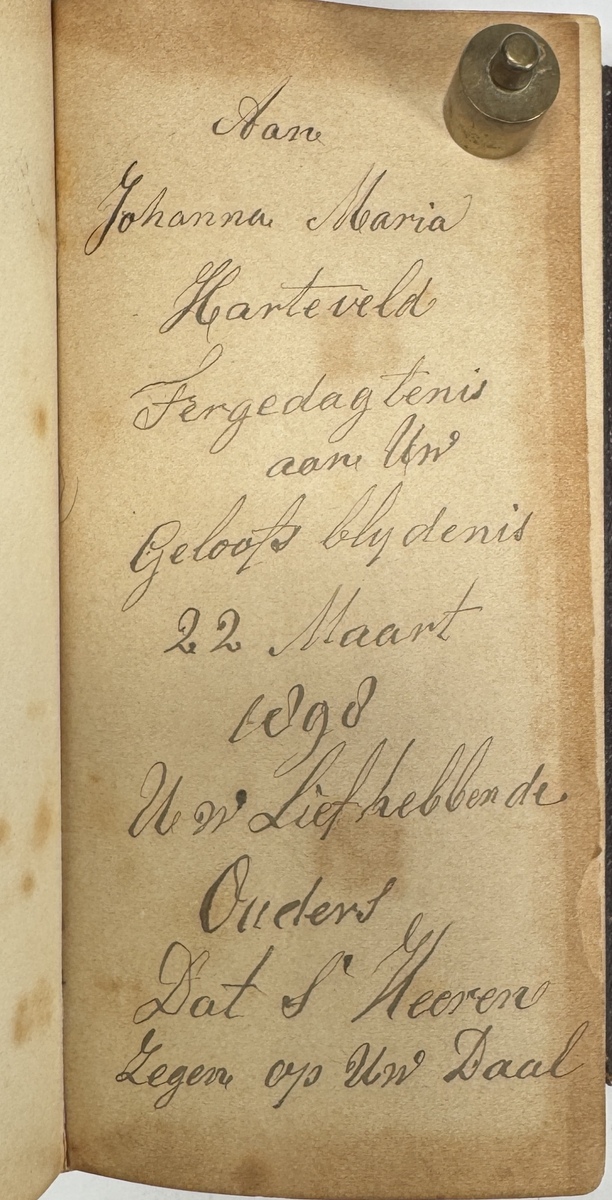 Aan
Johanna Maria
Harteveld
Tergedagtenis
aan Uw
Geloofs blydenis
22 Maart
1898
Uw Liefhebbende
Ouders
Dat S' Heeren
Zegen op Uw Daal